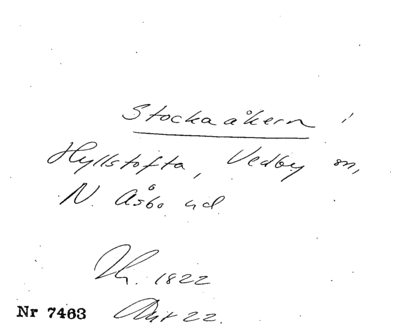 Stockaåkern i
Hyllstofta, Vedby sn,
N. Åsbo hd
Th. 1822
Nr 7463 Akt 22.